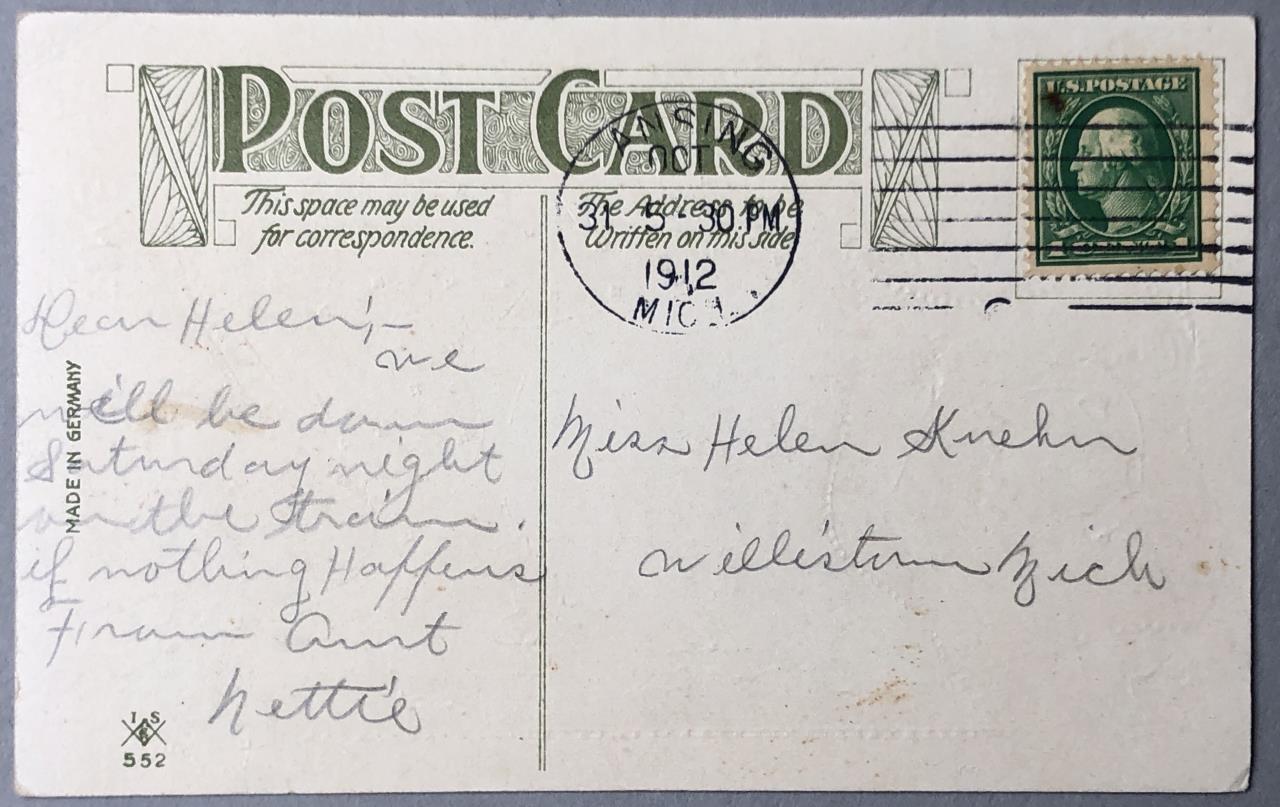 POST CARD
This space may be used
for correspondence.
The Address to be
Written on this side
LANSING
OCT
31 5-30 PM
1912
MICH.
U.S. POSTAGE
1 CENT 1
Dear Helen;-
we
will be down
Saturday night
on the train.
if nothing Happens
From Aunt
Nettie
Miss Helen Kuehn
Williston Mich
MADE IN GERMANY
I S
552